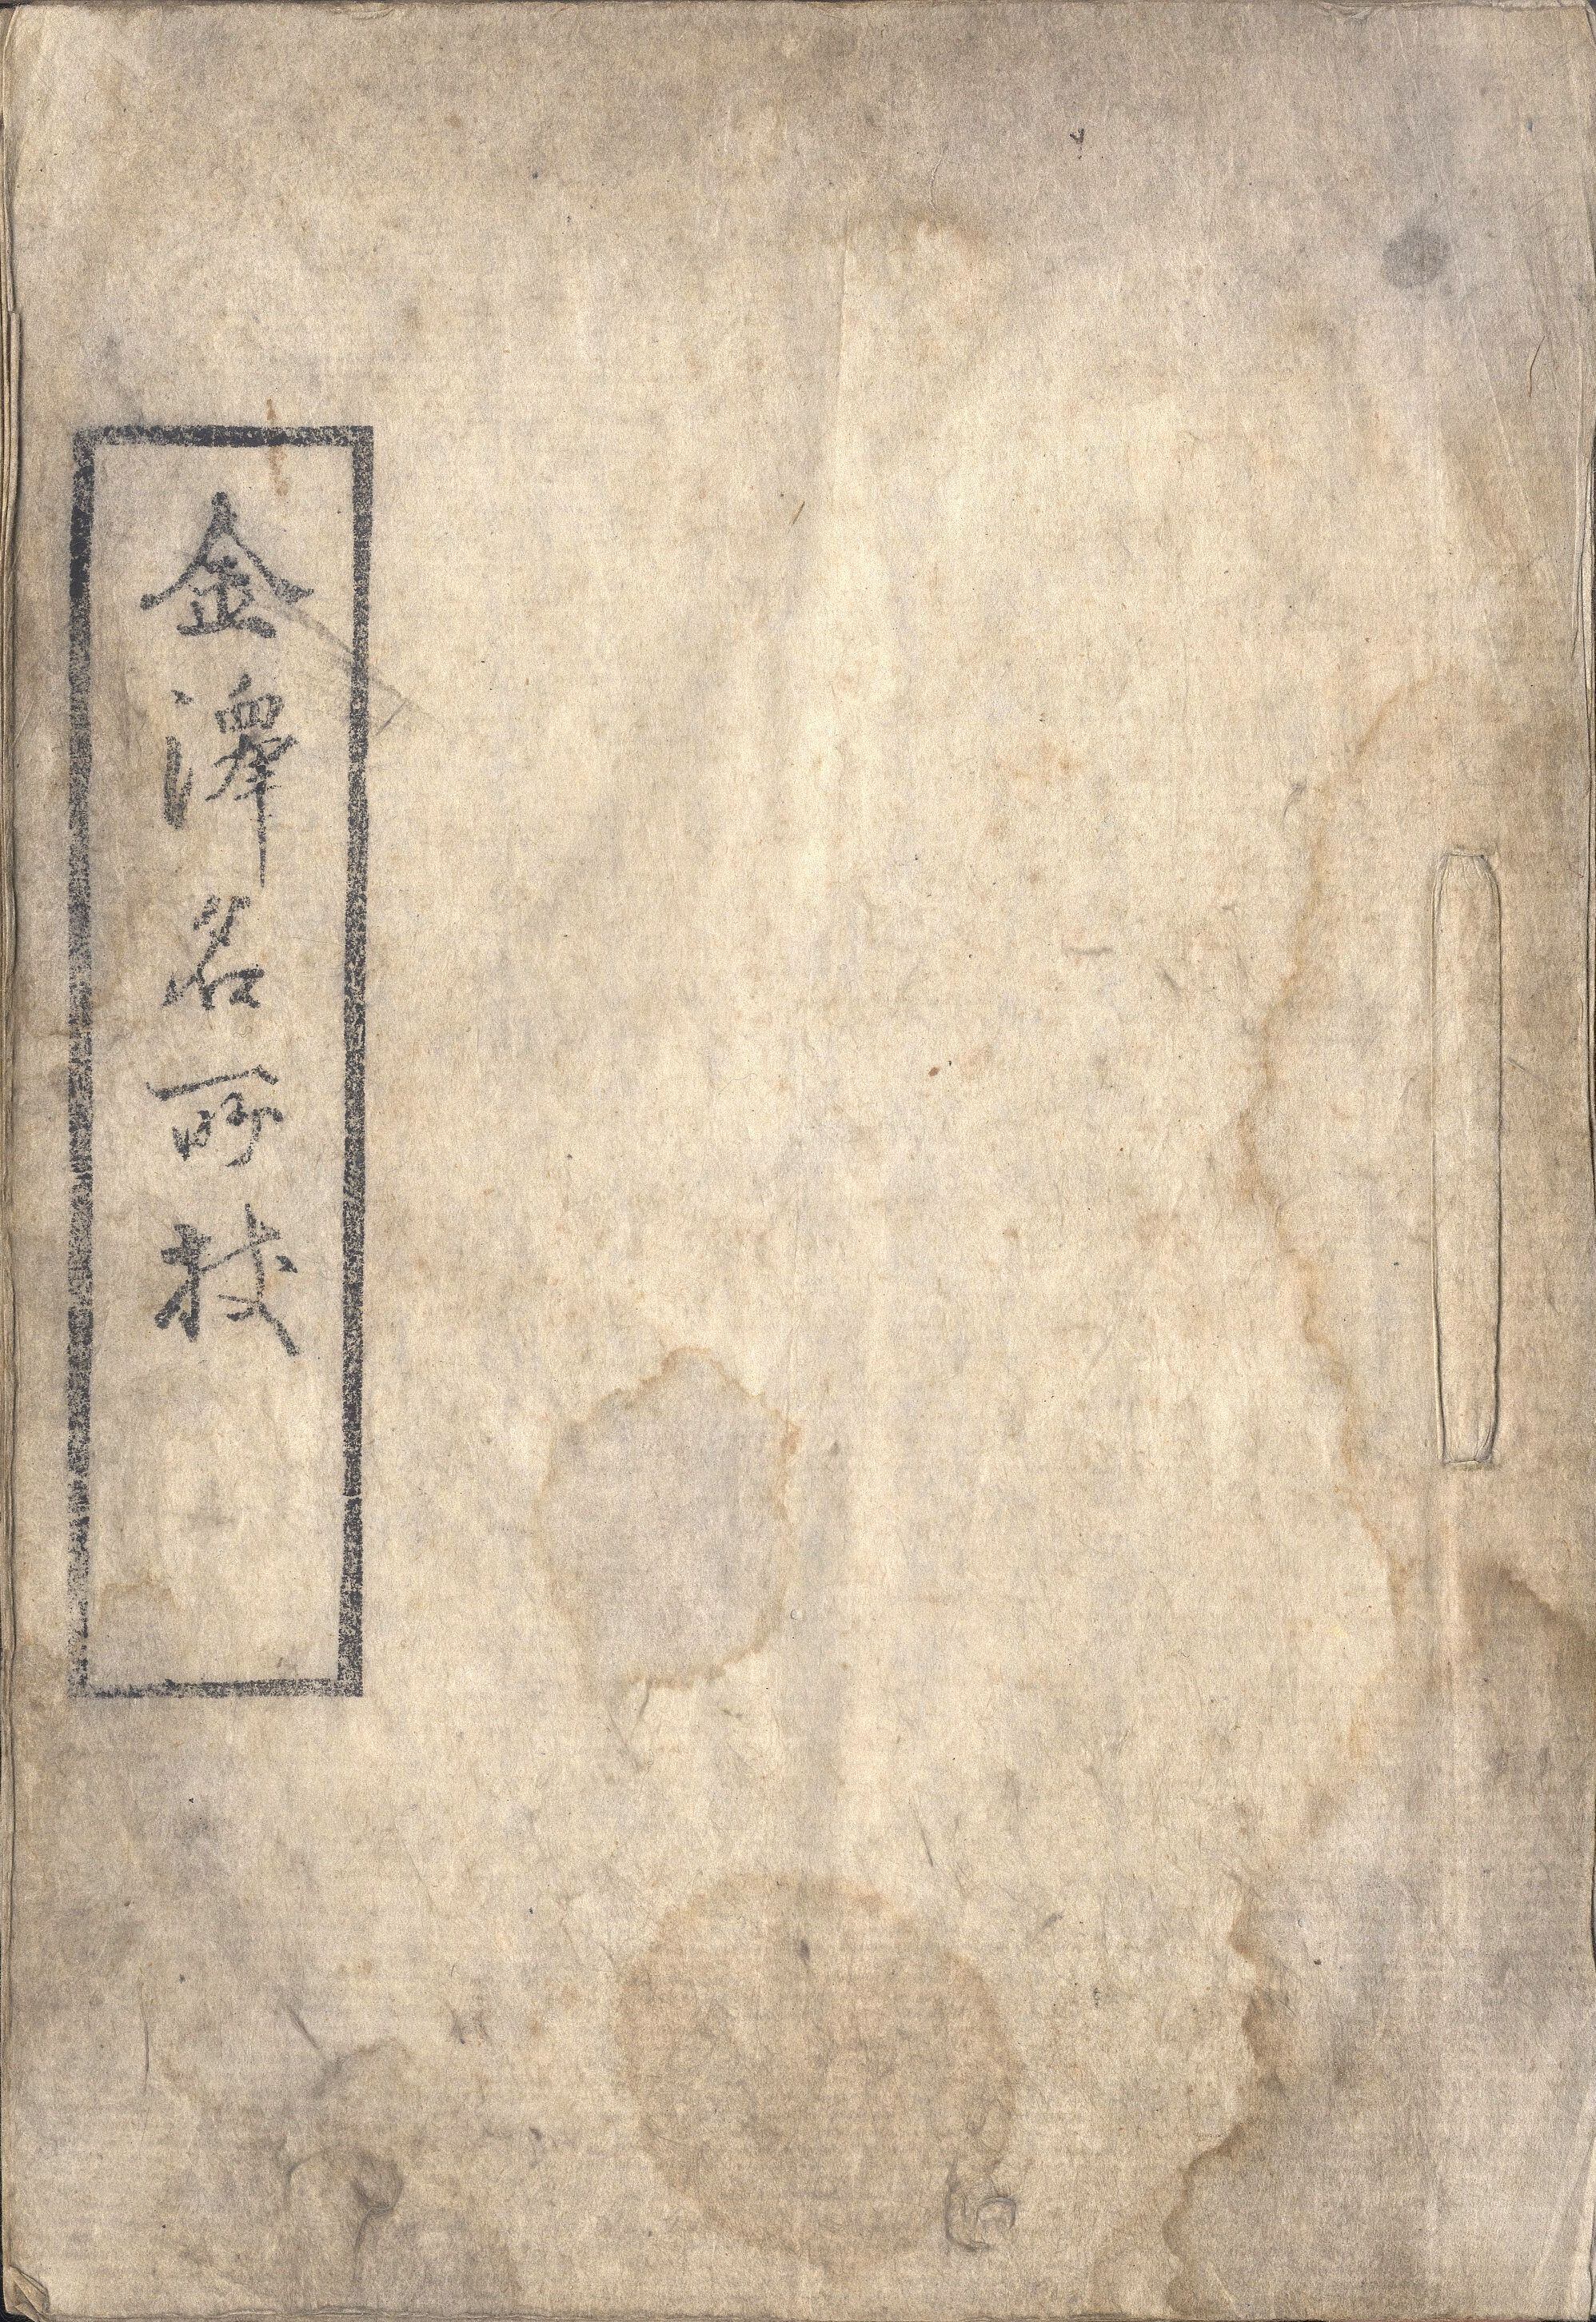 金澤名所杖